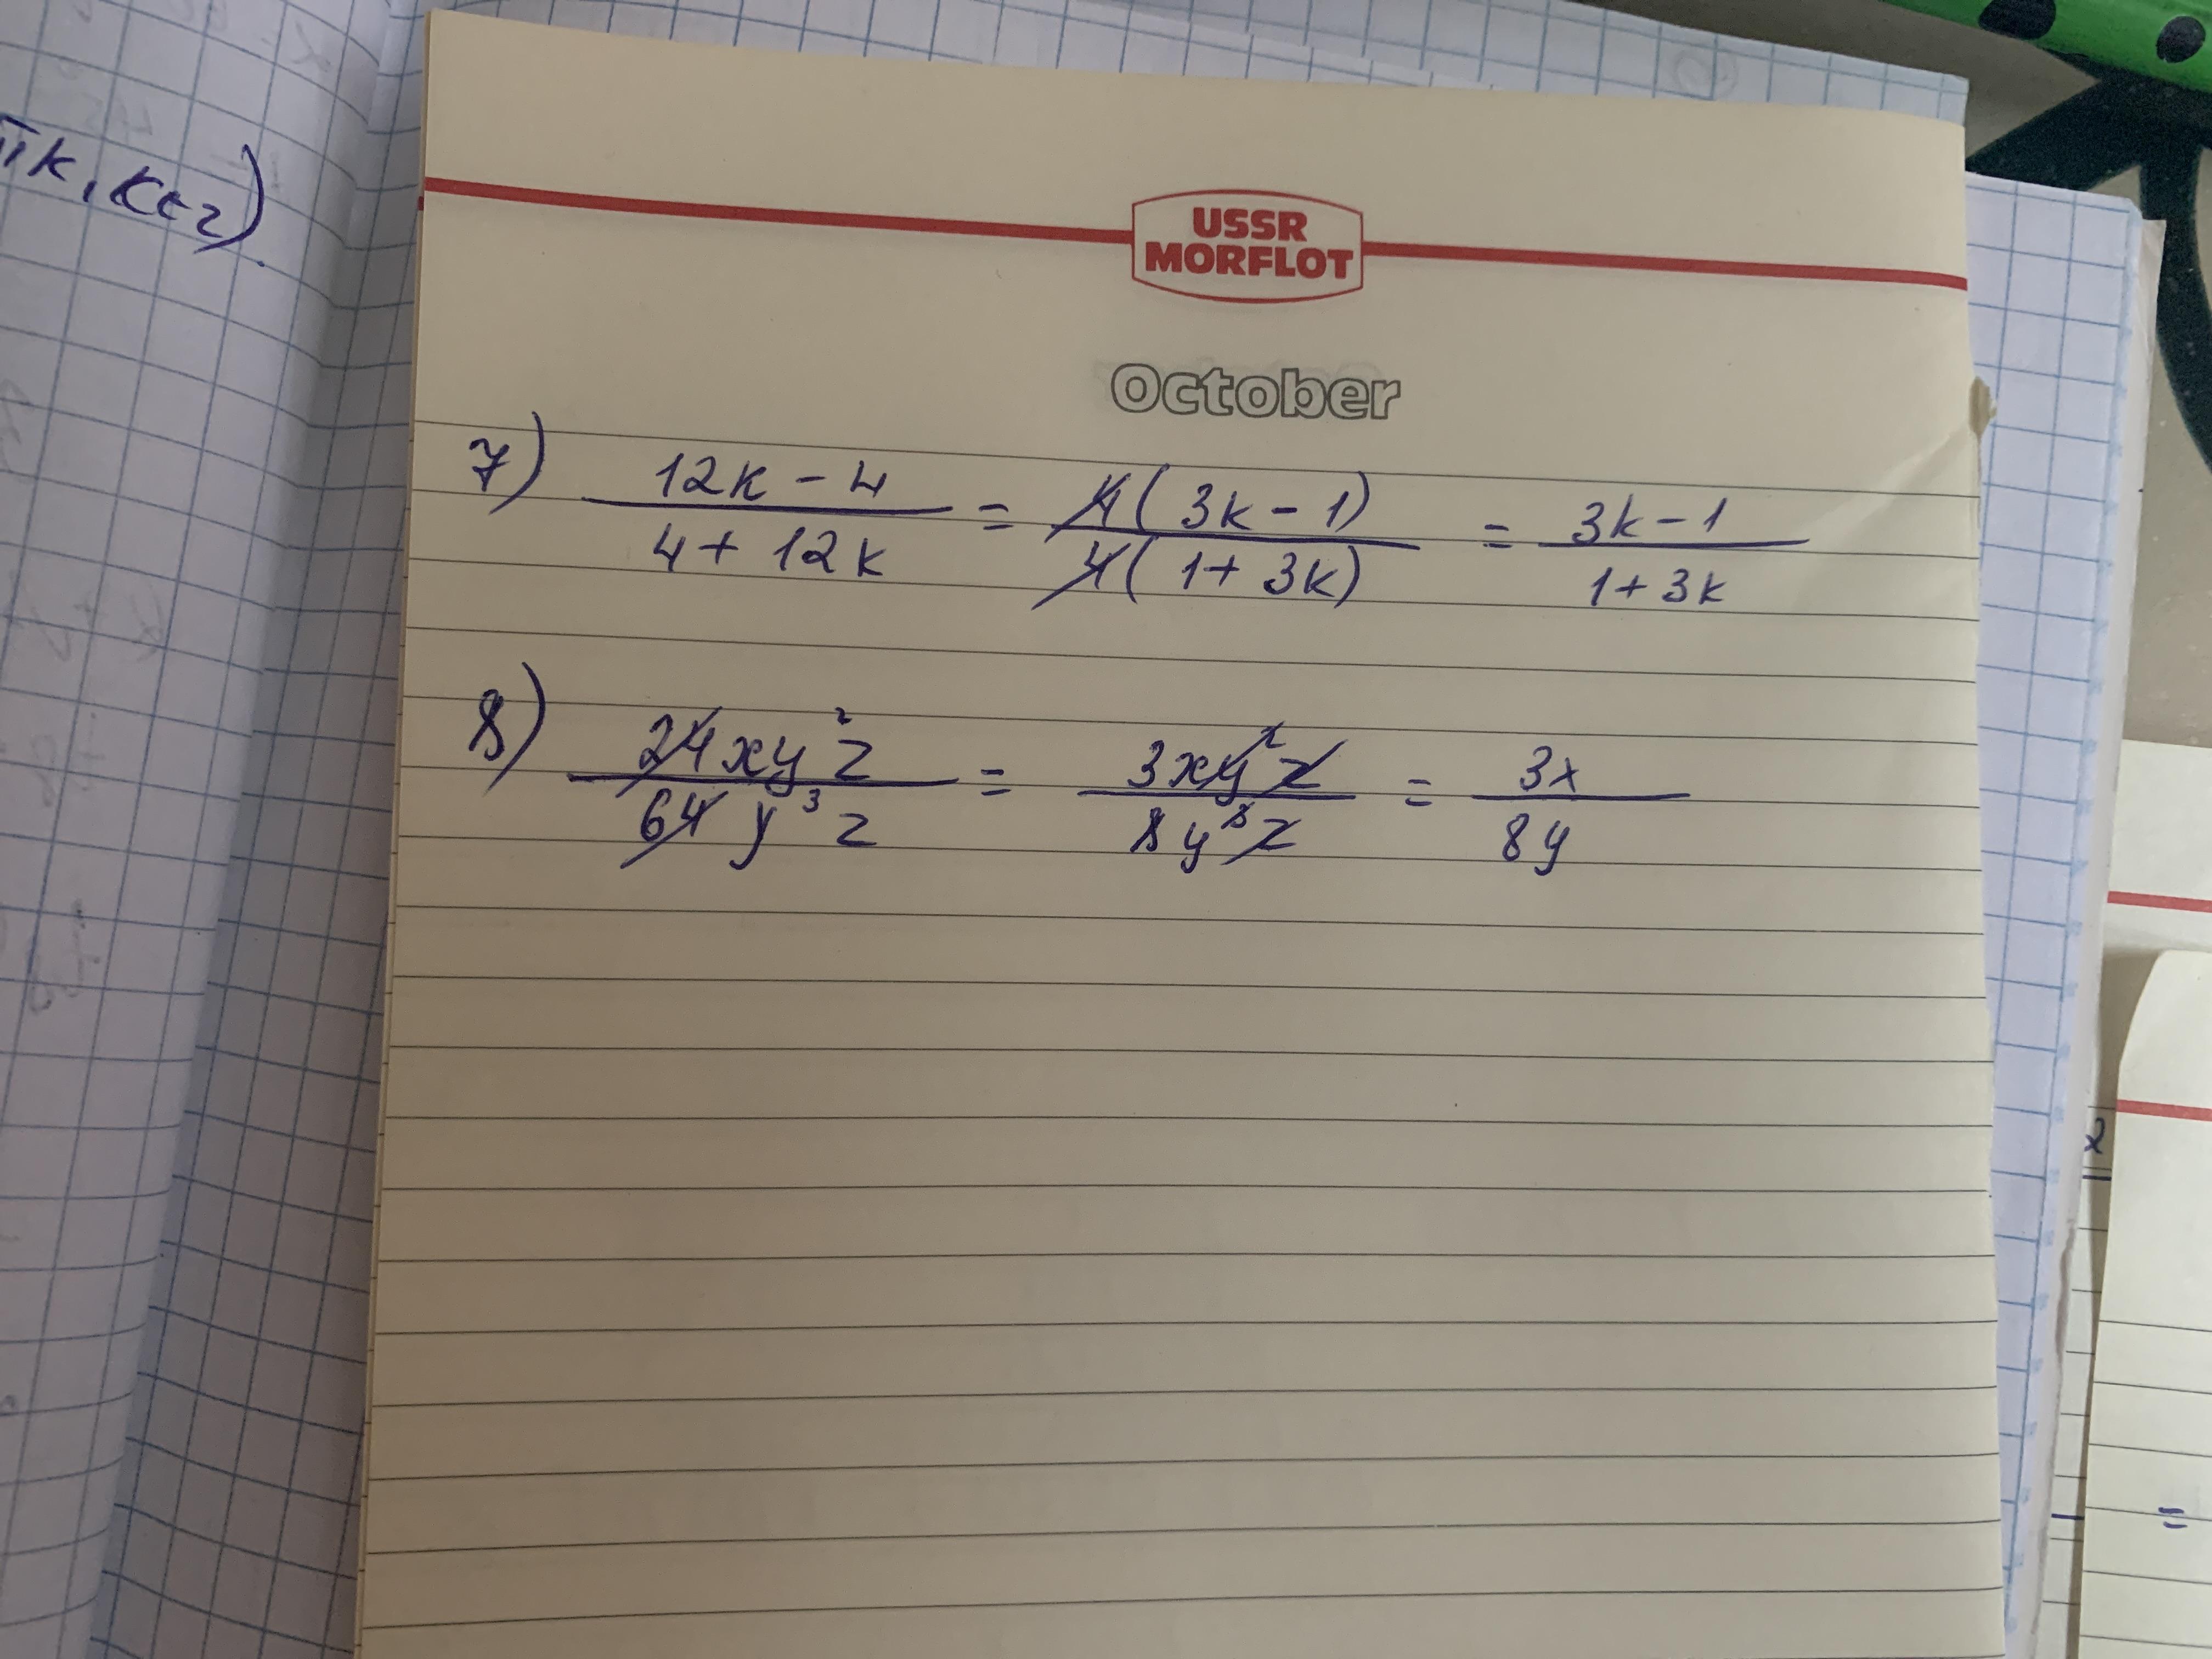 πk, k∈z).
USSR
MORFLOT
October
7) (12k - 4)/(4 + 12k) = 4(3k - 1)/4(1 + 3k) = (3k - 1)/(1 + 3k)
8) 24xy²z/64y³z = 3xy²z/8y³z = 3x/8y
2
=